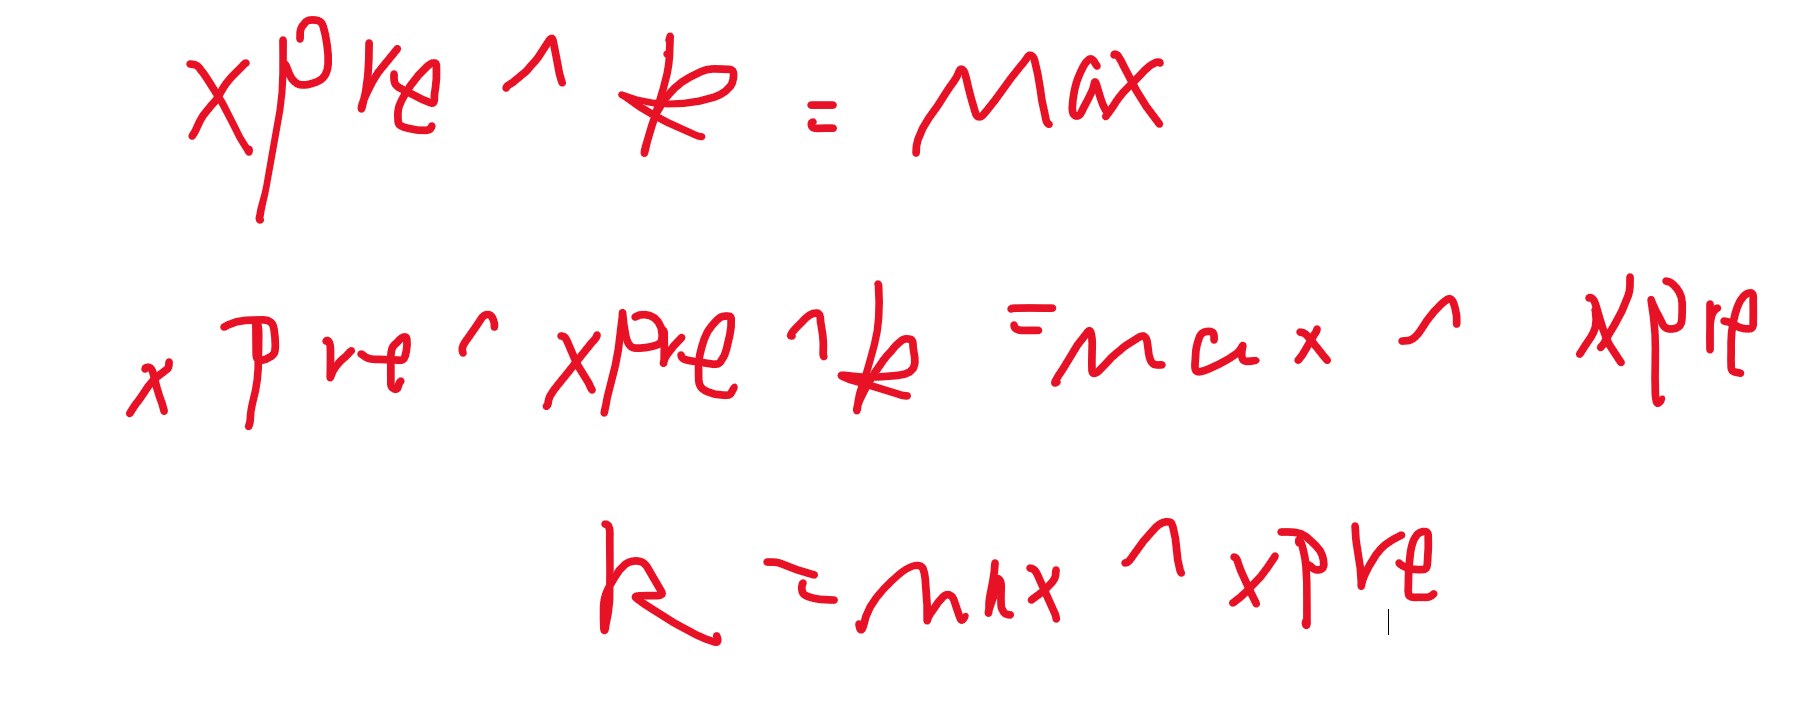 xpre ^ k = max
xpre ^ xpre ^ k = max ^ xpre
k = max ^ xpre